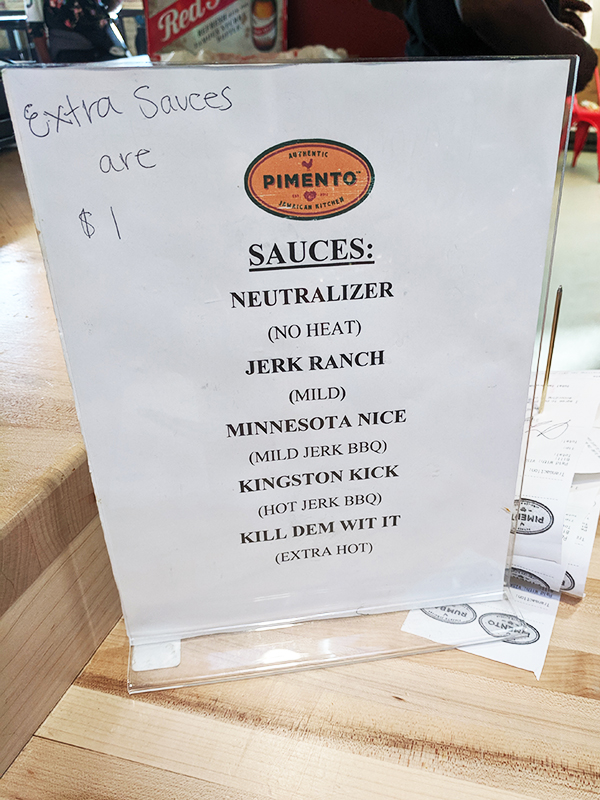 Red S
Extra Sauces
are
$1
AUTHENTIC
PIMENTO
JAMAICAN KITCHEN
SAUCES:
NEUTRALIZER
(NO HEAT)
JERK RANCH
(MILD)
MINNESOTA NICE
(MILD JERK BBQ)
KINGSTON KICK
(HOT JERK BBQ)
KILL DEM WIT IT
(EXTRA HOT)
PIMENTO
RUMB
PIMENTO